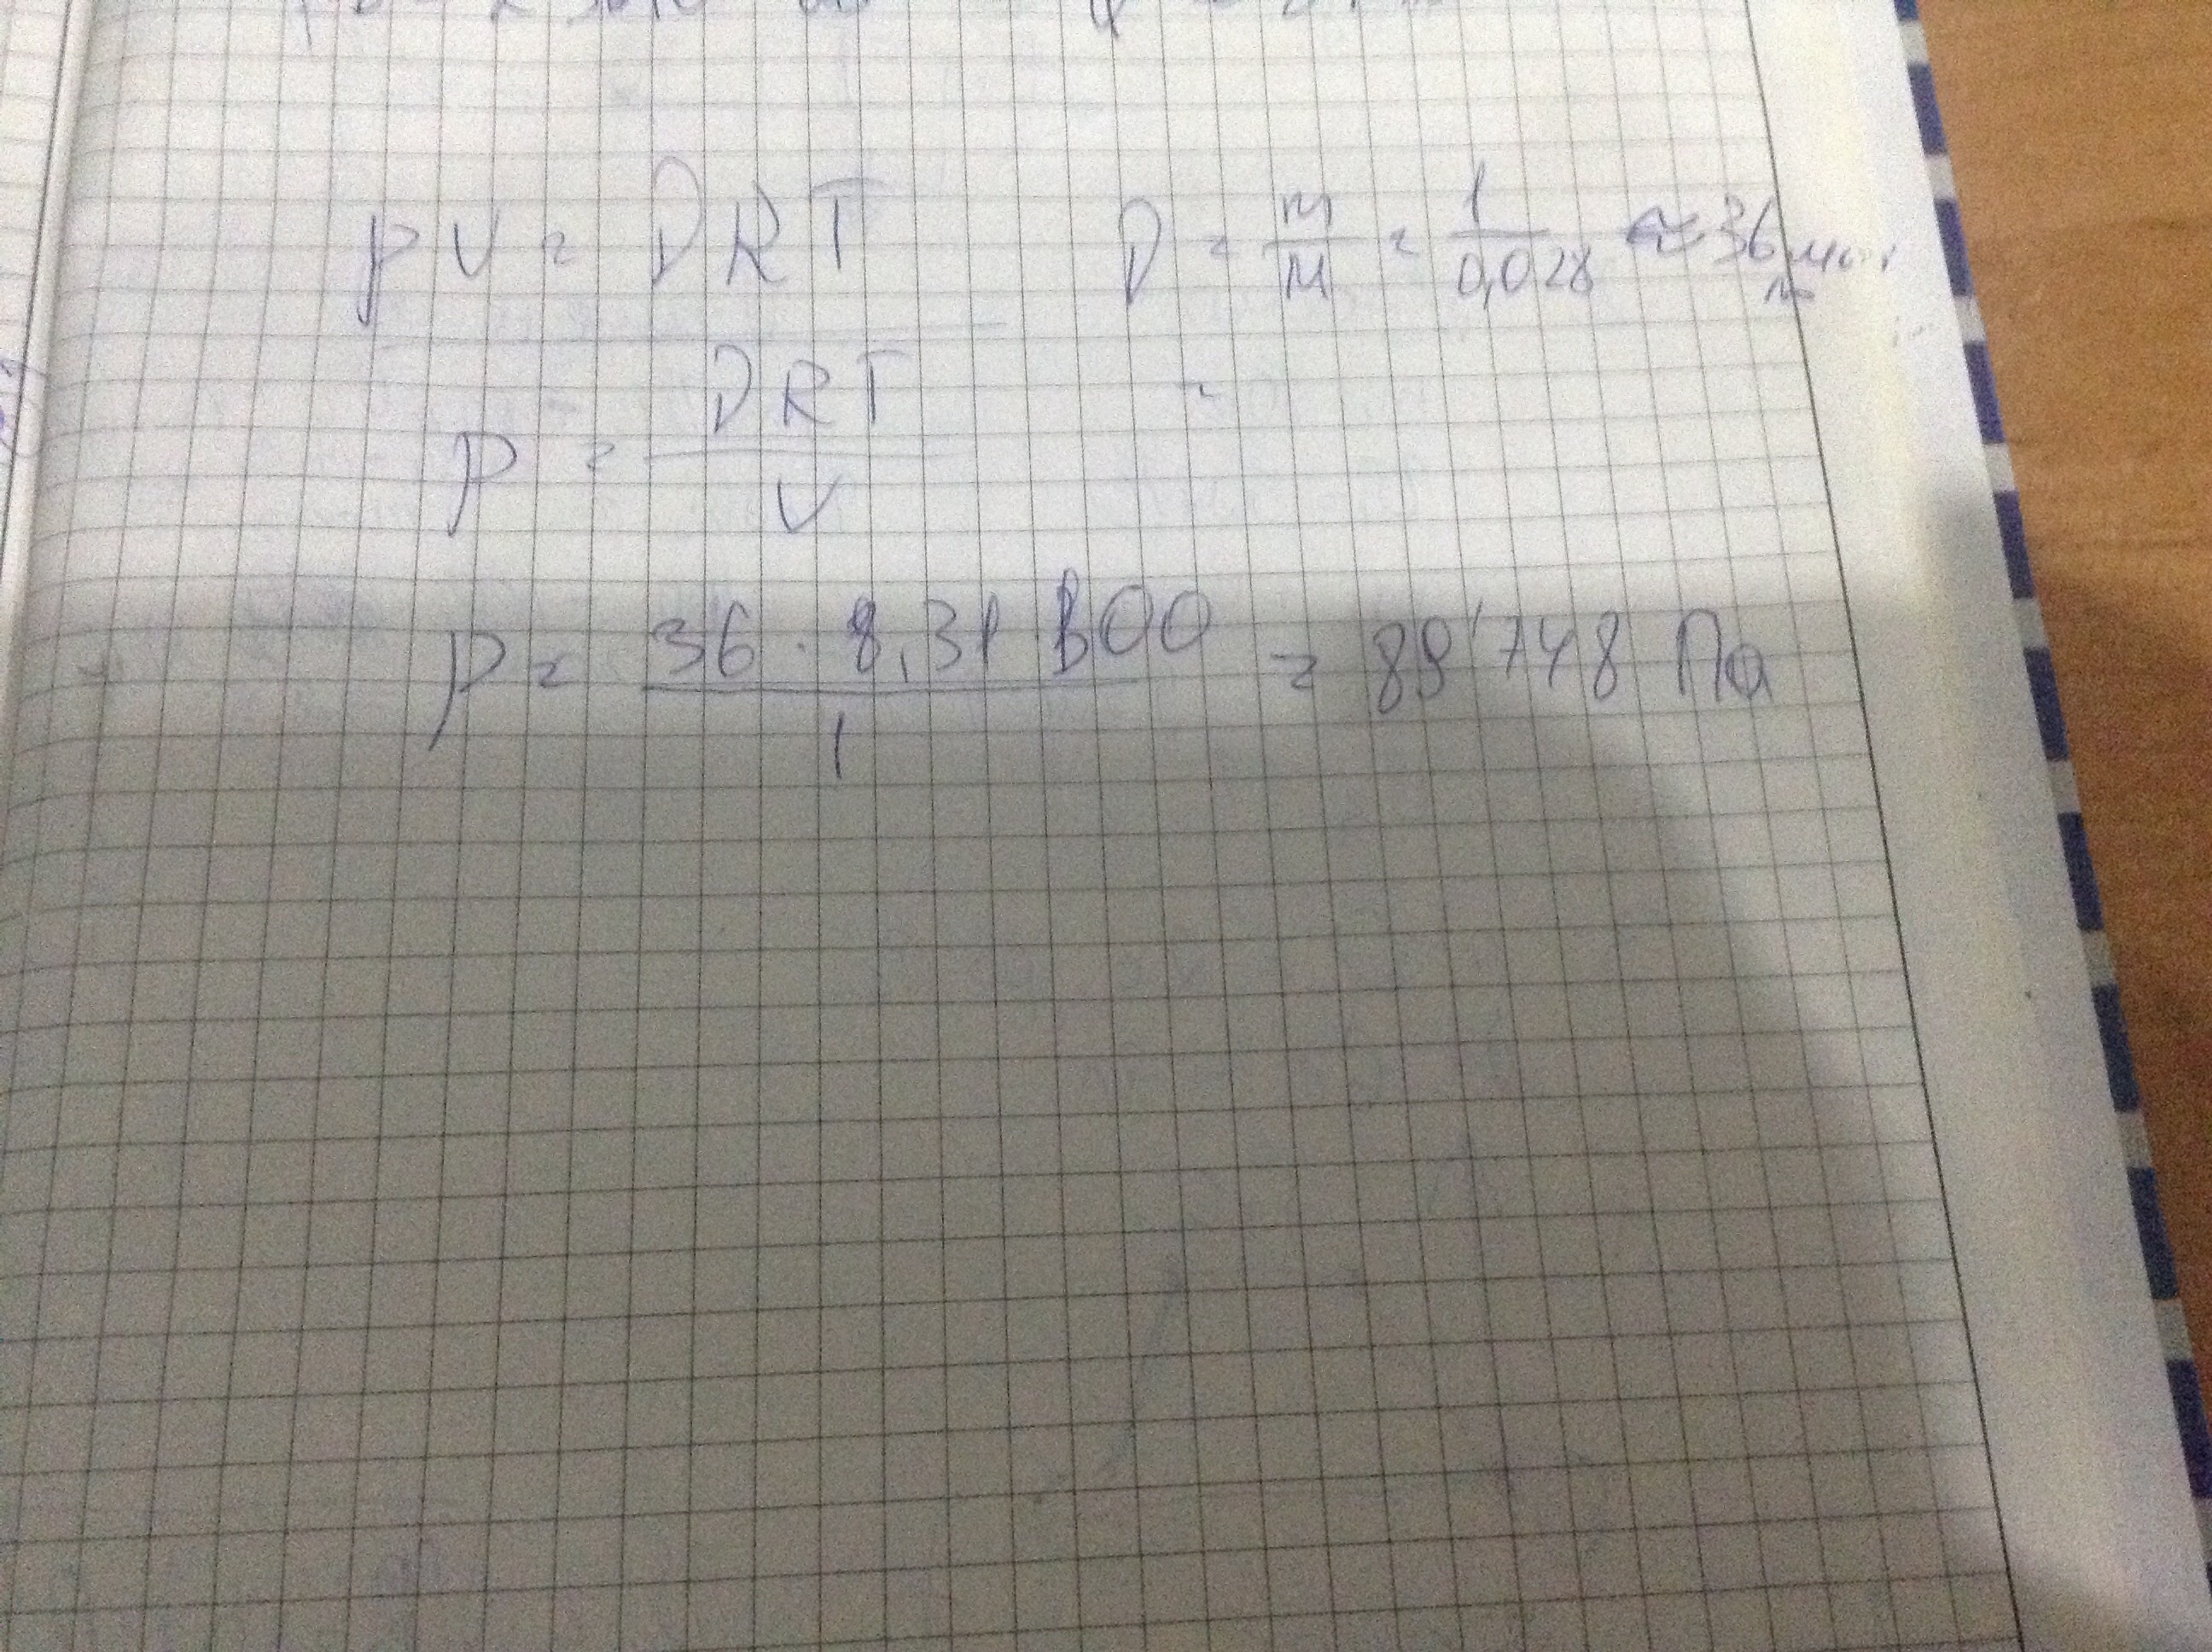 pV = DRT D = m/M = 1/0,028 ≈ 36 моль
p = DRT/V
p = 36 · 8,31 · 300/1 = 89'748 Па